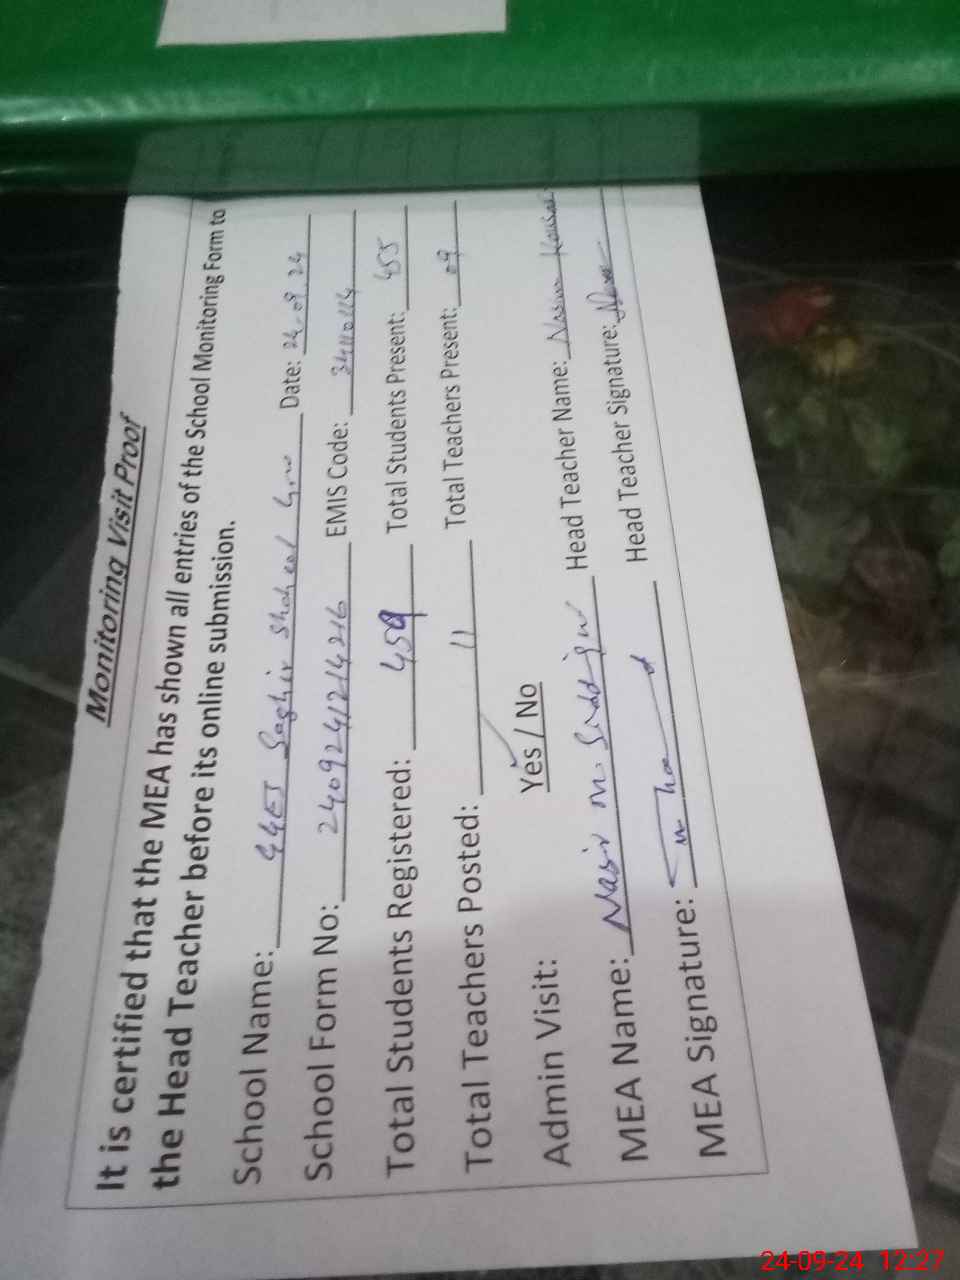 Monitoring Visit Proof
It is certified that the MEA has shown all entries of the School Monitoring Form to
the Head Teacher before its online submission.
School Name: GGES Saghir Shaheed Date: 24-09-24
School Form No: 2409241214216 EMIS Code:
Total Students Registered: 459 Total Students Present: 455
Total Teachers Posted: 11 Total Teachers Present: 09
Admin Visit: Yes / No
MEA Name: Nasir M Siddiqui Head Teacher Name: Nasim Kousar
MEA Signature: Head Teacher Signature:
24-09-24 12:27